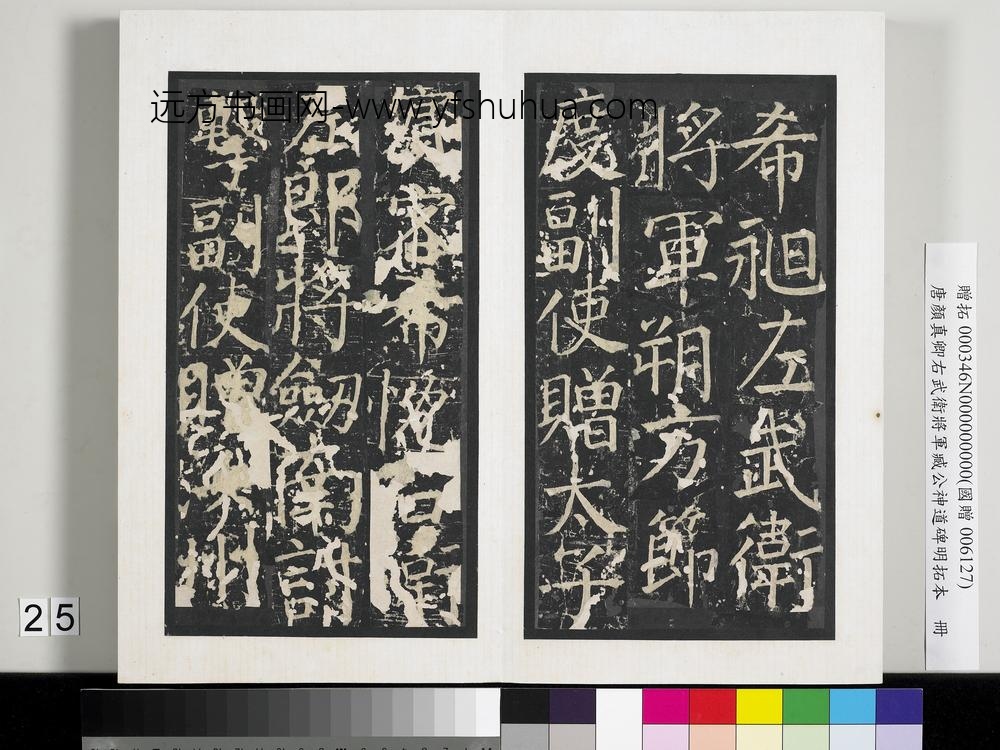 希昶左武衛
將軍朔方節
度副使贈太子
賓客希愔
郎將劍南討
擊副使贈州
远方书画网-www.yfshuhua.com
贈拓 000346N000000000(國贈 006127)
唐顏真卿右武衛將軍臧公神道碑明拓本 冊
25